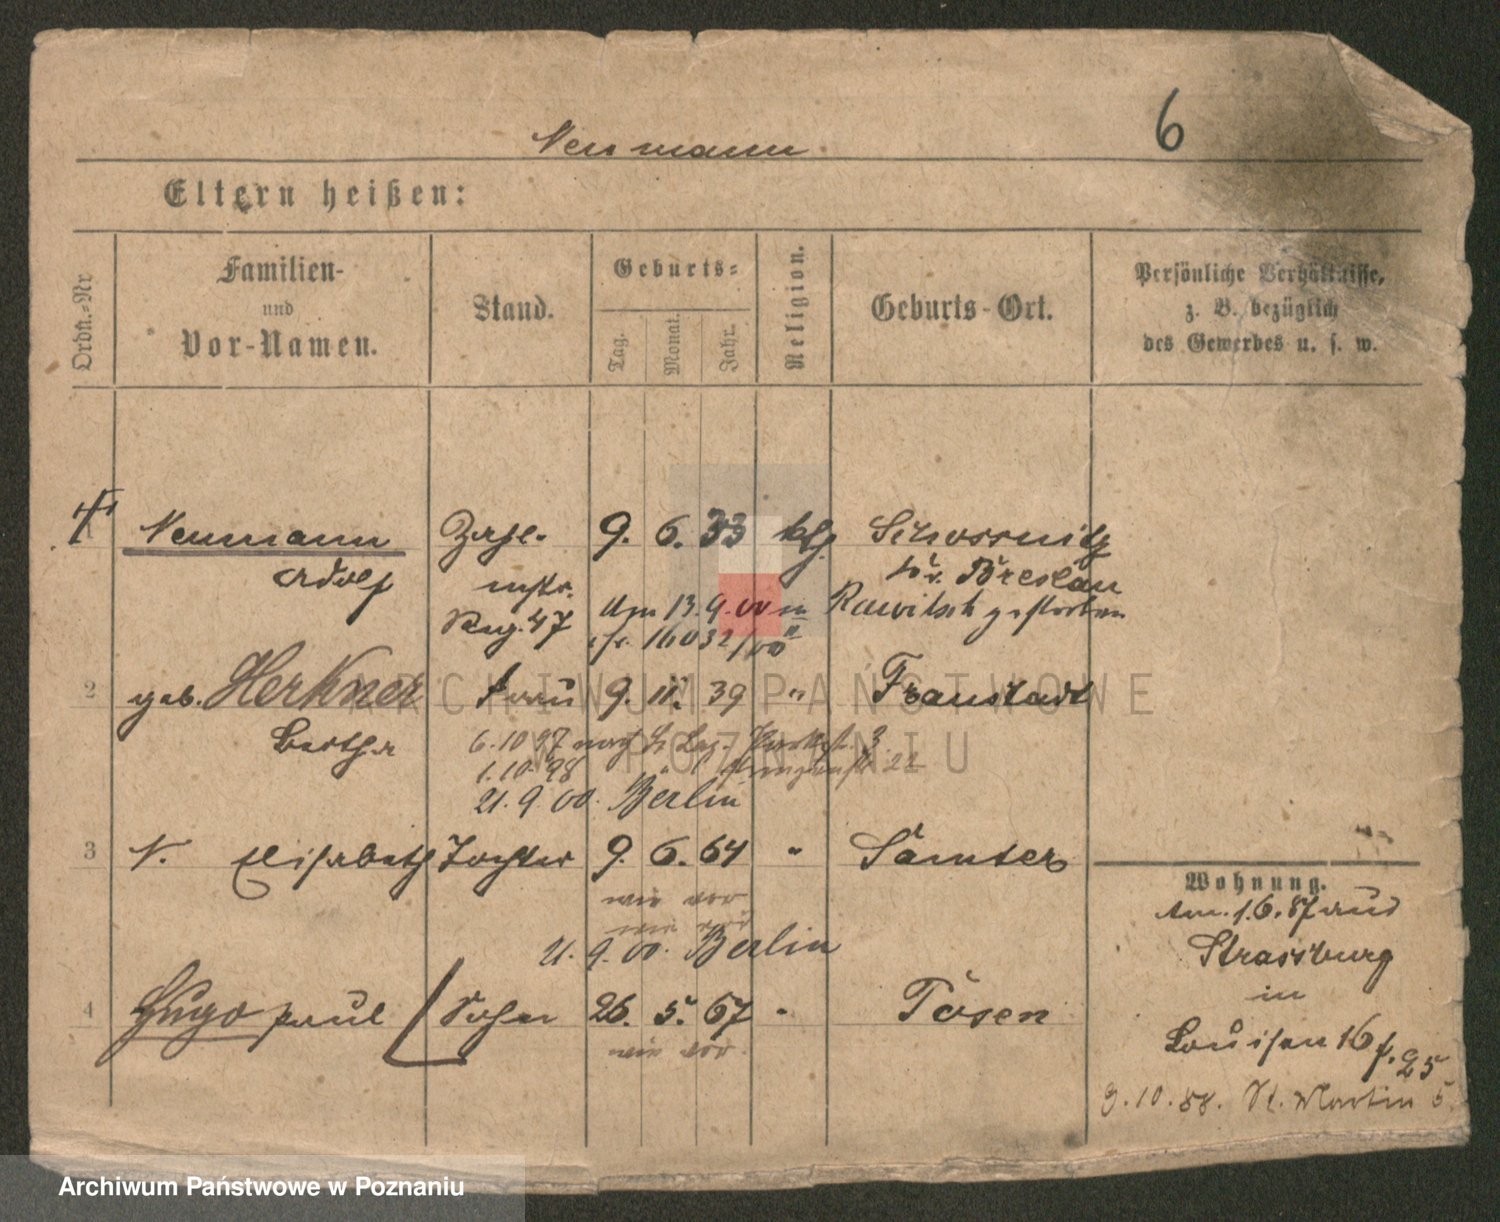 Neumann
6
Eltern heißen:
Ordn.-Nr
Familien-
und
Vor-Namen.
Stand.
Geburts-
Tag.
Monat.
Jahr.
Religion.
Geburts-Ort.
Persönliche Verhältnisse,
z. B. bezüglich
des Gewerbes u. s. w.
1 Neumann 9. 6. 33 kth.
Adolf
Breslau
Reg. 47 Am 13.9.00 in Rawitsch gestorben
16032/00
2 geb. Herkner Frau 9. 11. 39 " Fraustadt
Bertha 6.10 97 nach
1.10.98
21.9 00. Berlin
3 N. Elisabeth Tochter 9. 6. 64 " Samter
wie vor
wie vor
21.9.00. Berlin
4 Hugo Paul Sohn 26. 5. 67 " Posen
wie vor.
Wohnung.
Am. 1.6.87 aus
Strassburg
in
Louisen 16
3.10.88. St. Martin
ARCHIWUM PAŃSTWOWE
W POZNANIU
Archiwum Państwowe w Poznaniu